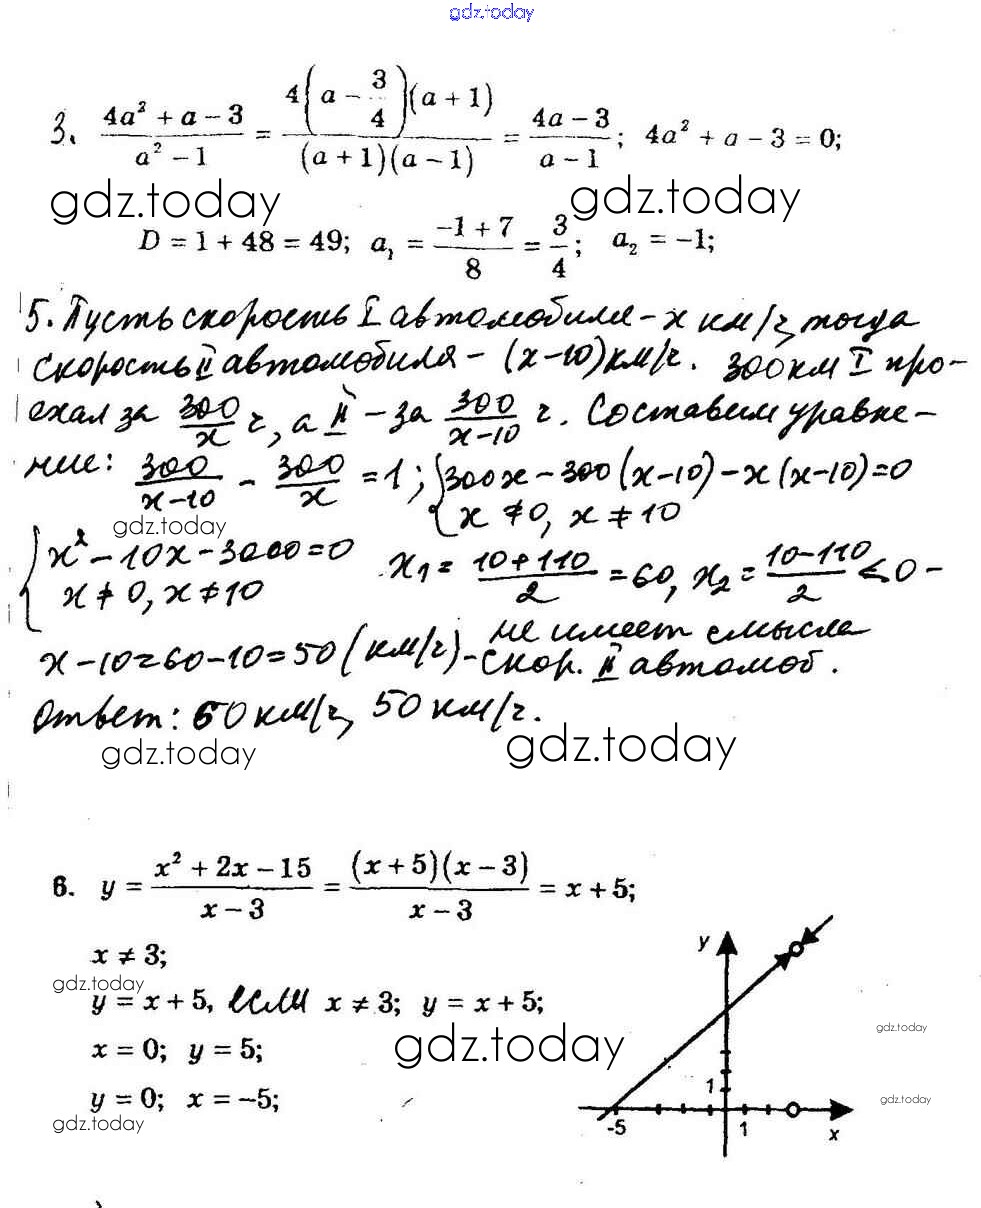 gdz.today
3. (4a² + a − 3)/(a² − 1) = 4(a − 3/4)(a + 1)/((a + 1)(a − 1)) = (4a − 3)/(a − 1); 4a² + a − 3 = 0;
gdz.today gdz.today
D = 1 + 48 = 49; a₁ = (−1 + 7)/8 = 3/4; a₂ = −1;
5. Пусть скорость I автомобиля - x км/ч, тогда
скорость II автомобиля - (x-10) км/ч. 300 км I про-
ехал за 300/x ч, а II - за 300/(x-10) ч. Составим уравне-
ние: 300/(x-10) - 300/x = 1; { 300x - 300(x-10) - x(x-10) = 0
x ≠ 0, x ≠ 10
gdz.today
{ x² - 10x - 3000 = 0
x ≠ 0, x ≠ 10
x₁ = (10+110)/2 = 60, x₂ = (10-110)/2 < 0 -
не имеет смысла
x - 10 = 60 - 10 = 50 (км/ч) - скор. II автомоб.
Ответ: 60 км/ч, 50 км/ч.
gdz.today gdz.today
6. y = (x² + 2x − 15)/(x − 3) = (x + 5)(x − 3)/(x − 3) = x + 5;
x ≠ 3;
gdz.today
y = x + 5, если x ≠ 3; y = x + 5;
x = 0; y = 5;
gdz.today
y = 0; x = −5;
gdz.today
y
1
-5
1
x
gdz.today
gdz.today